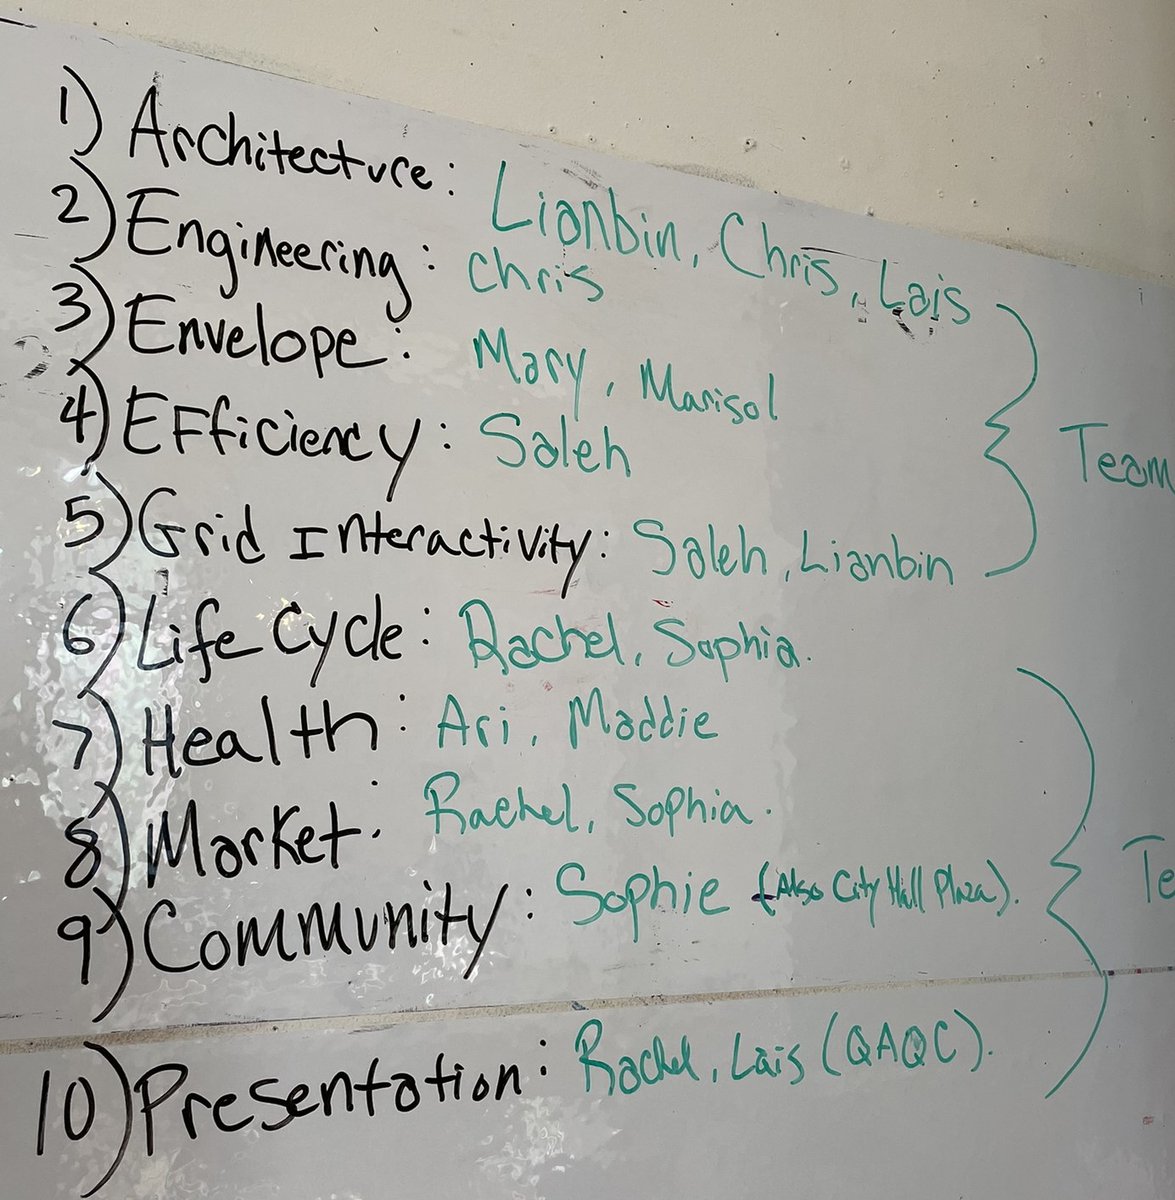 1) Architecture: Lianbin, Chris, Lais
2) Engineering: Chris
3) Envelope: Mary, Marisol
4) Efficiency: Saleh
Team
5) Grid Interactivity: Saleh, Lianbin
6) Life Cycle: Rachel, Sophia.
7) Health: Ari, Maddie
8) Market: Rachel, Sophia.
9) Community: Sophie (Also City Hall Plaza).
Te
10) Presentation: Rachel, Lais (QAQC).